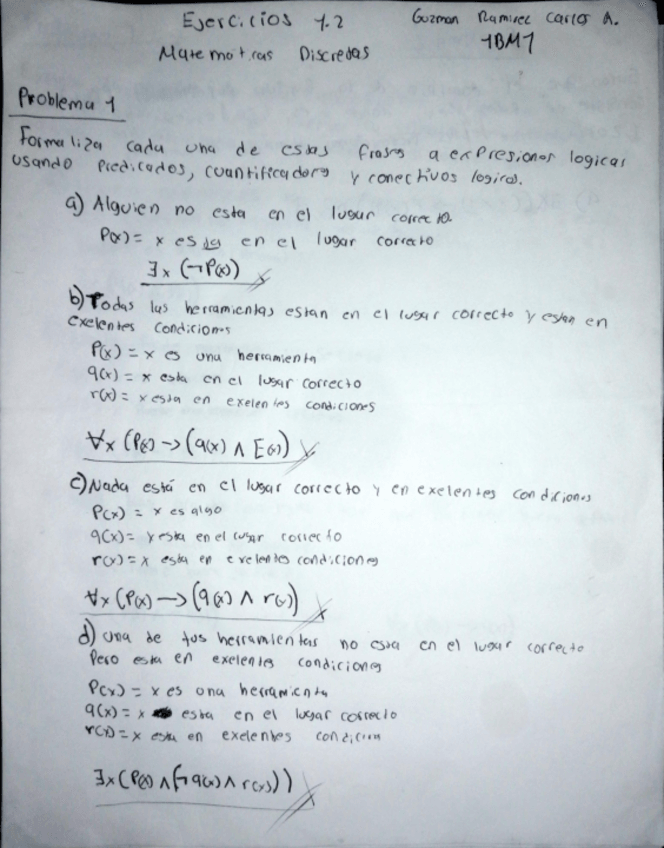 Ejercicios 1.2
Guzman Ramirez Carlos A.
1BM1
Matematicas Discretas
Problema 1
Formaliza cada una de estas frases a expresiones logicas
usando predicados, cuantificadores y conectivos logicos.
a) Alguien no esta en el lugar correcto.
P(x) = x esta en el lugar correcto
∃x (¬P(x))
b) Todas las herramientas estan en el lugar correcto y estan en
exelentes condiciones
P(x) = x es una herramienta
q(x) = x esta en el lugar correcto
r(x) = x esta en exelentes condiciones
∀x (P(x) → (q(x) ∧ E(x))
c) Nada está en el lugar correcto y en exelentes condiciones
P(x) = x es algo
q(x) = x esta en el lugar correcto
r(x) = x esta en exelentes condiciones
∀x (P(x) → (q(x) ∧ r(x))
d) Una de tus herramientas no esta en el lugar correcto
Pero esta en exelentes condiciones
P(x) = x es una herramienta
q(x) = x esta en el lugar correcto
r(x) = x esta en exelentes condicion
∃x (P(x) ∧ (¬q(x) ∧ r(x)))